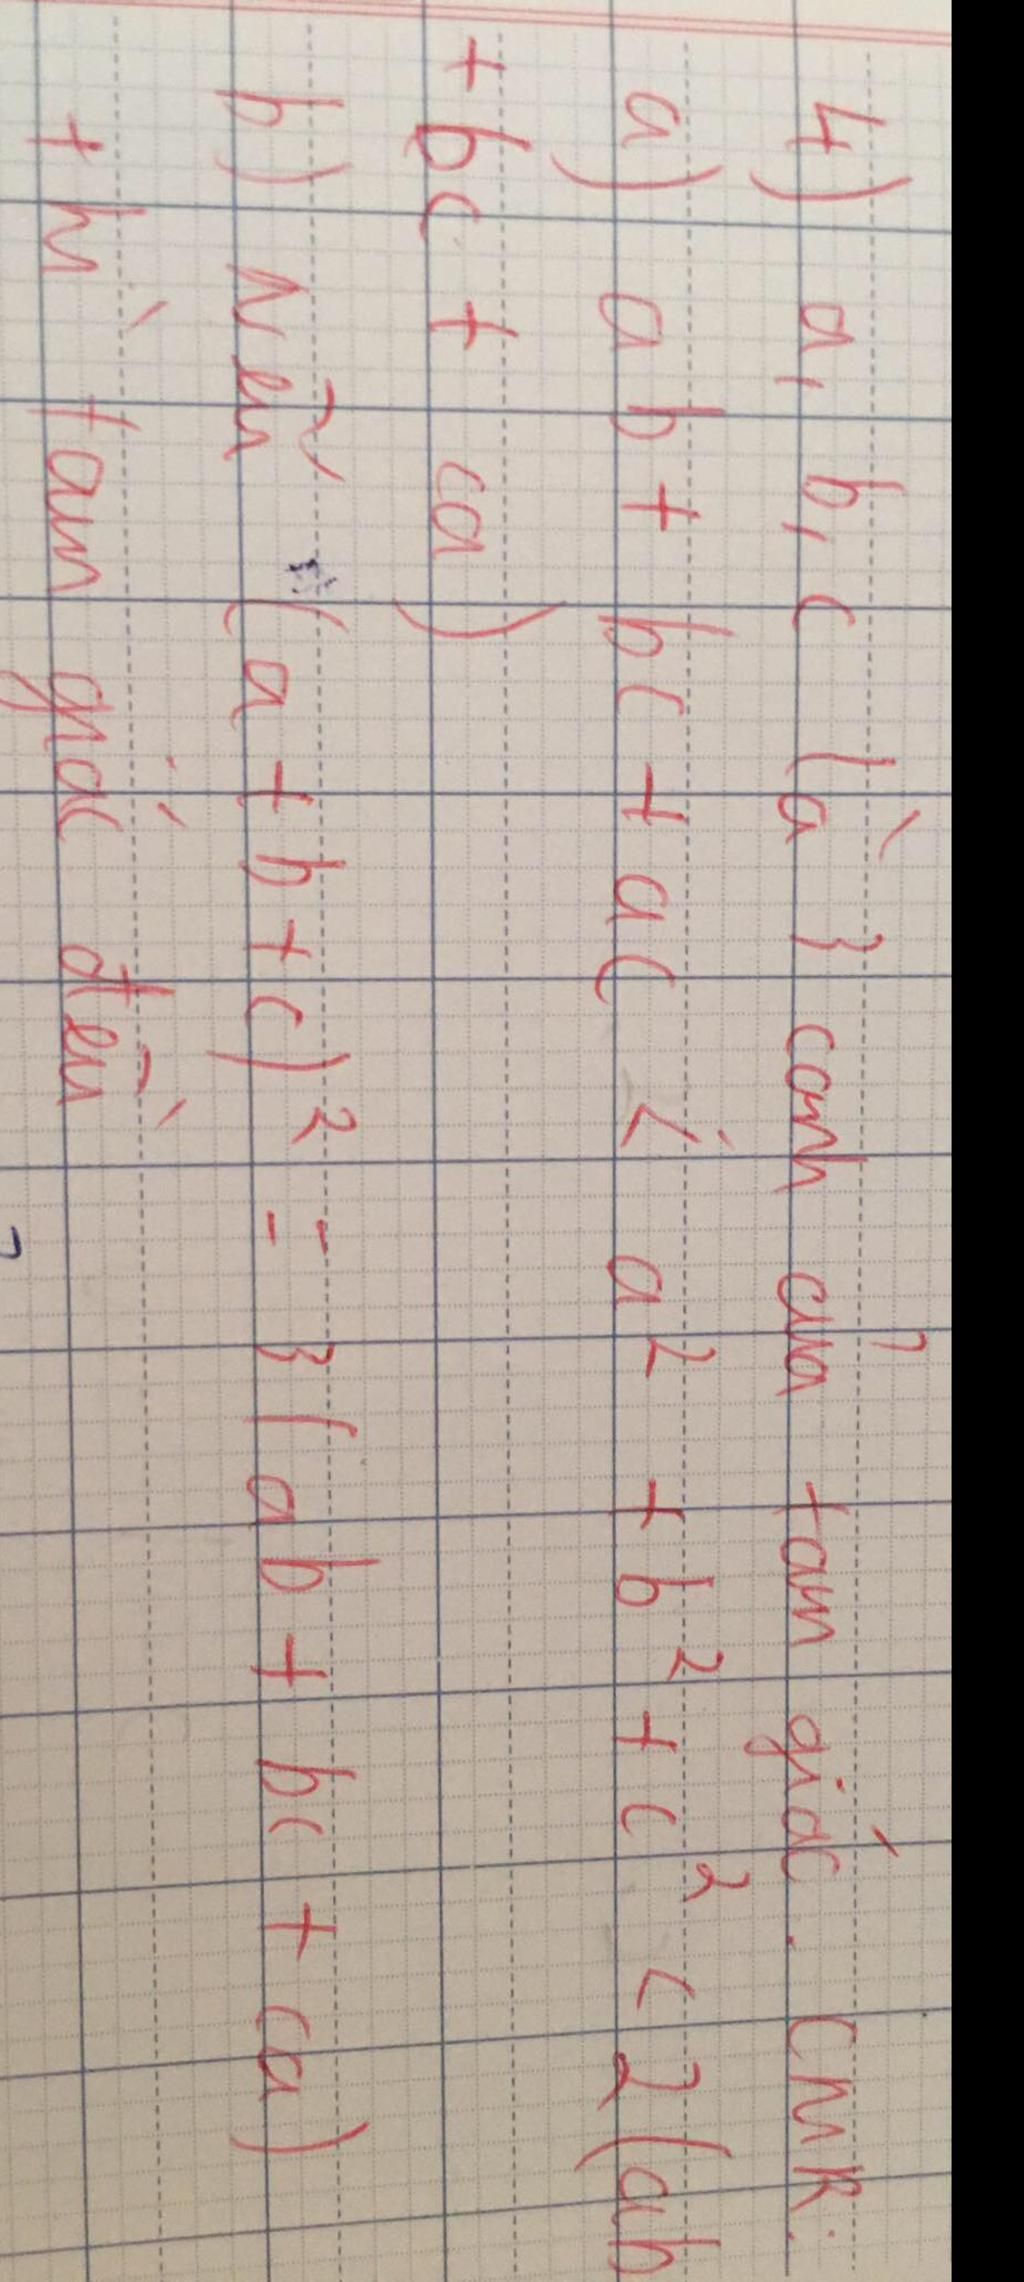 4) a, b, c là 3 cạnh của tam giác. CMR:
a) ab + bc + ac ≤ a² + b² + c² < 2(ab
+ bc + ca)
b) Nếu (a + b + c)² = 3(ab + bc + ca)
thì tam giác đều